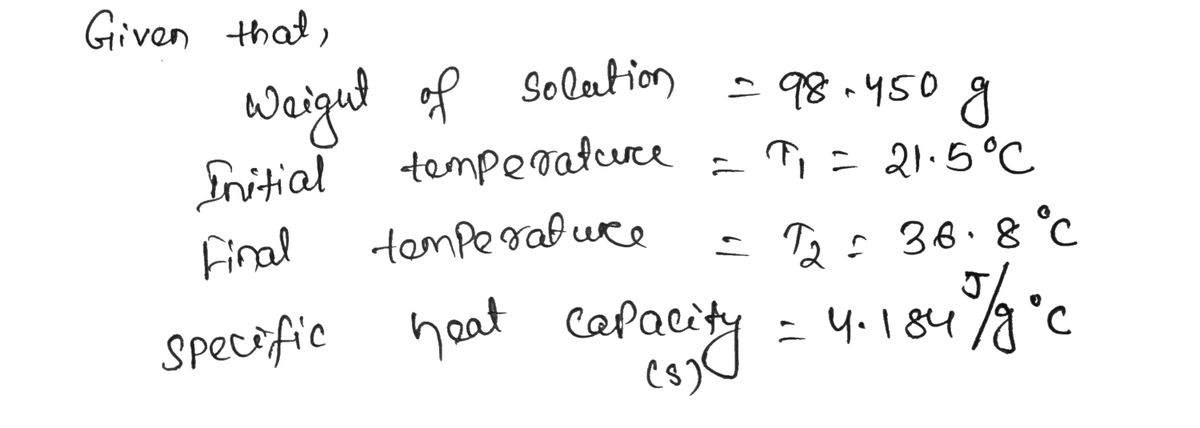 Given that,
Weigut of Solution = 98.450 g
Initial temperature = T₁ = 21.5°C
Final temperature = T₂ = 36.8°C
specific heat capacity = 4.184 J/g°C
(s)